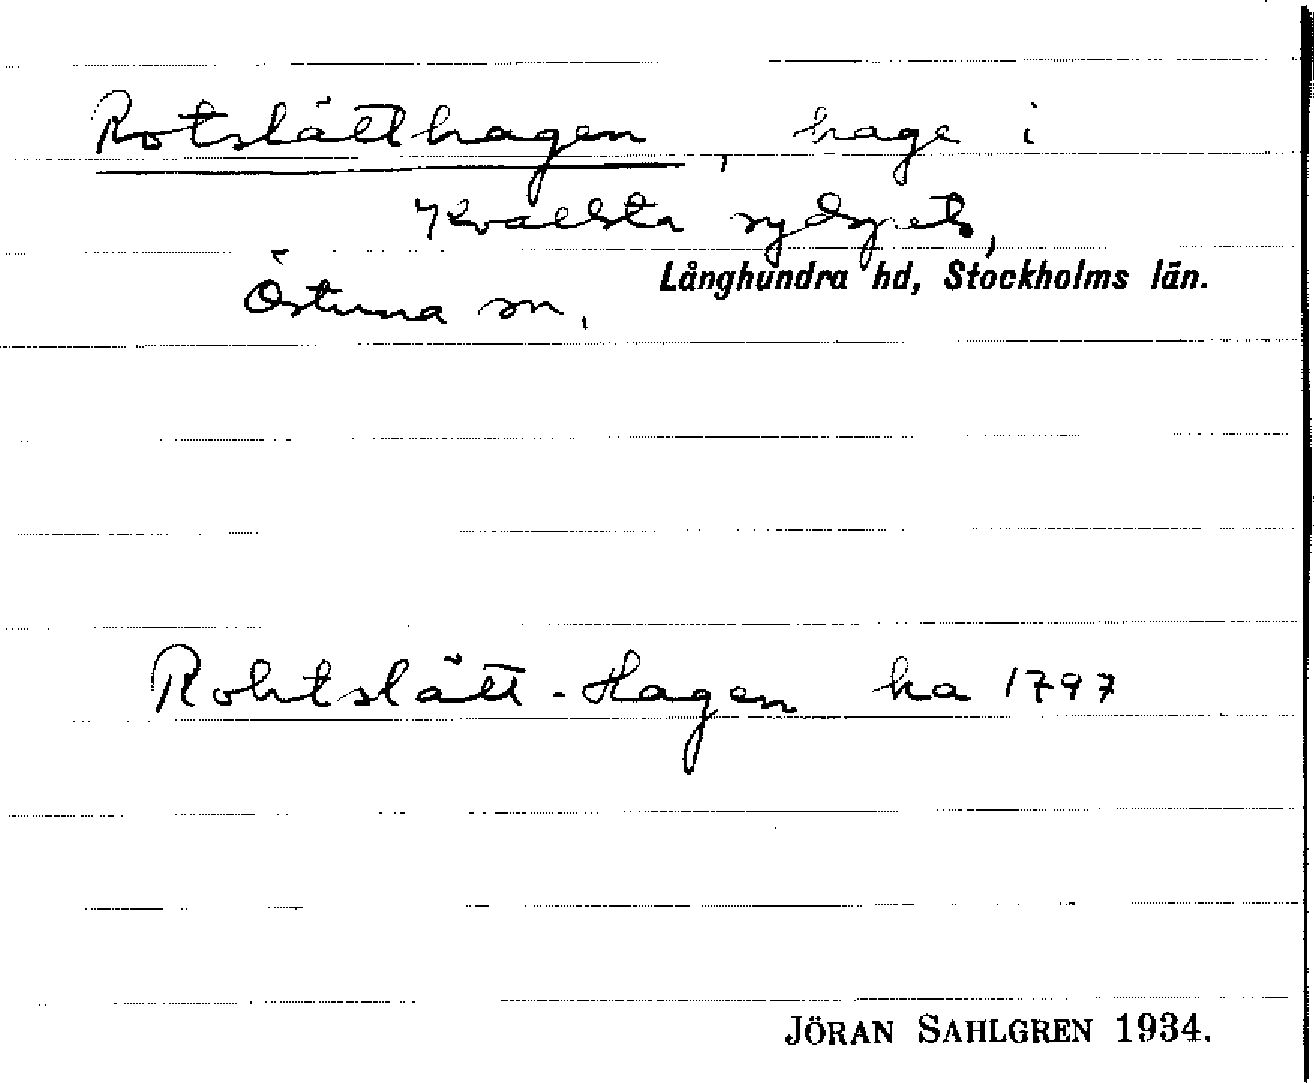 Rotslätthagen, hage i
Kvallsta sydgets,
Östuna sn, Långhundra hd, Stockholms län.
Rohtslätt-Hagen ha 1797
JÖRAN SAHLGREN 1934.